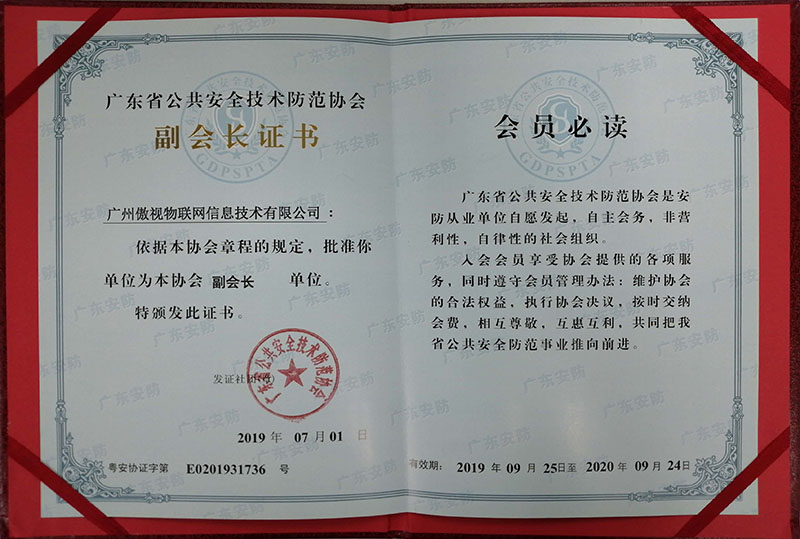 广东省公共安全技术防范协会
副会长证书
广州傲视物联网信息技术有限公司：
依据本协会章程的规定，批准你
单位为本协会 副会长 单位。
特颁发此证书。
发证社团(章)
广东省公共安全技术防范协会
2019 年 07 月 01 日
粤安协证字第 E0201931736 号
会员必读
广东省公共安全技术防范协会是安
防从业单位自愿发起，自主会务，非营
利性，自律性的社会组织。
入会会员享受协会提供的各项服
务，同时遵守会员管理办法：维护协会
的合法权益，执行协会决议，按时交纳
会费，相互尊敬，互惠互利，共同把我
省公共安全防范事业推向前进。
有效期： 2019 年 09 月 25日至 2020 年 09 月 24日
GDPSPTA
GDPSPTA
广东安防